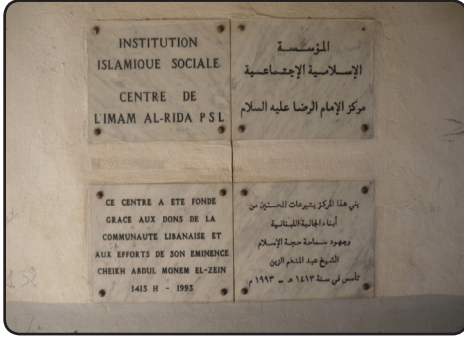 INSTITUTION
ISLAMIQUE SOCIALE
CENTRE DE
L'IMAM AL-RIDA P S L
المؤسسة
الإسلامية الإجتماعية
مركز الإمام الرضا عليه السلام
CE CENTRE A ETE FONDE
GRACE AUX DONS DE LA
COMMUNAUTE LIBANAISE ET
AUX EFFORTS DE SON EMINENCE
CHEIKH ABDUL MONEM EL-ZEIN
1413 H - 1993
بني هذا المركز بتبرعات المحسنين من
أبناء الجالية اللبنانية
وجهود سماحة حجة الإسلام
الشيخ عبد المنعم الزين
تأسس في سنة ١٤١٣ هـ - ١٩٩٣ م